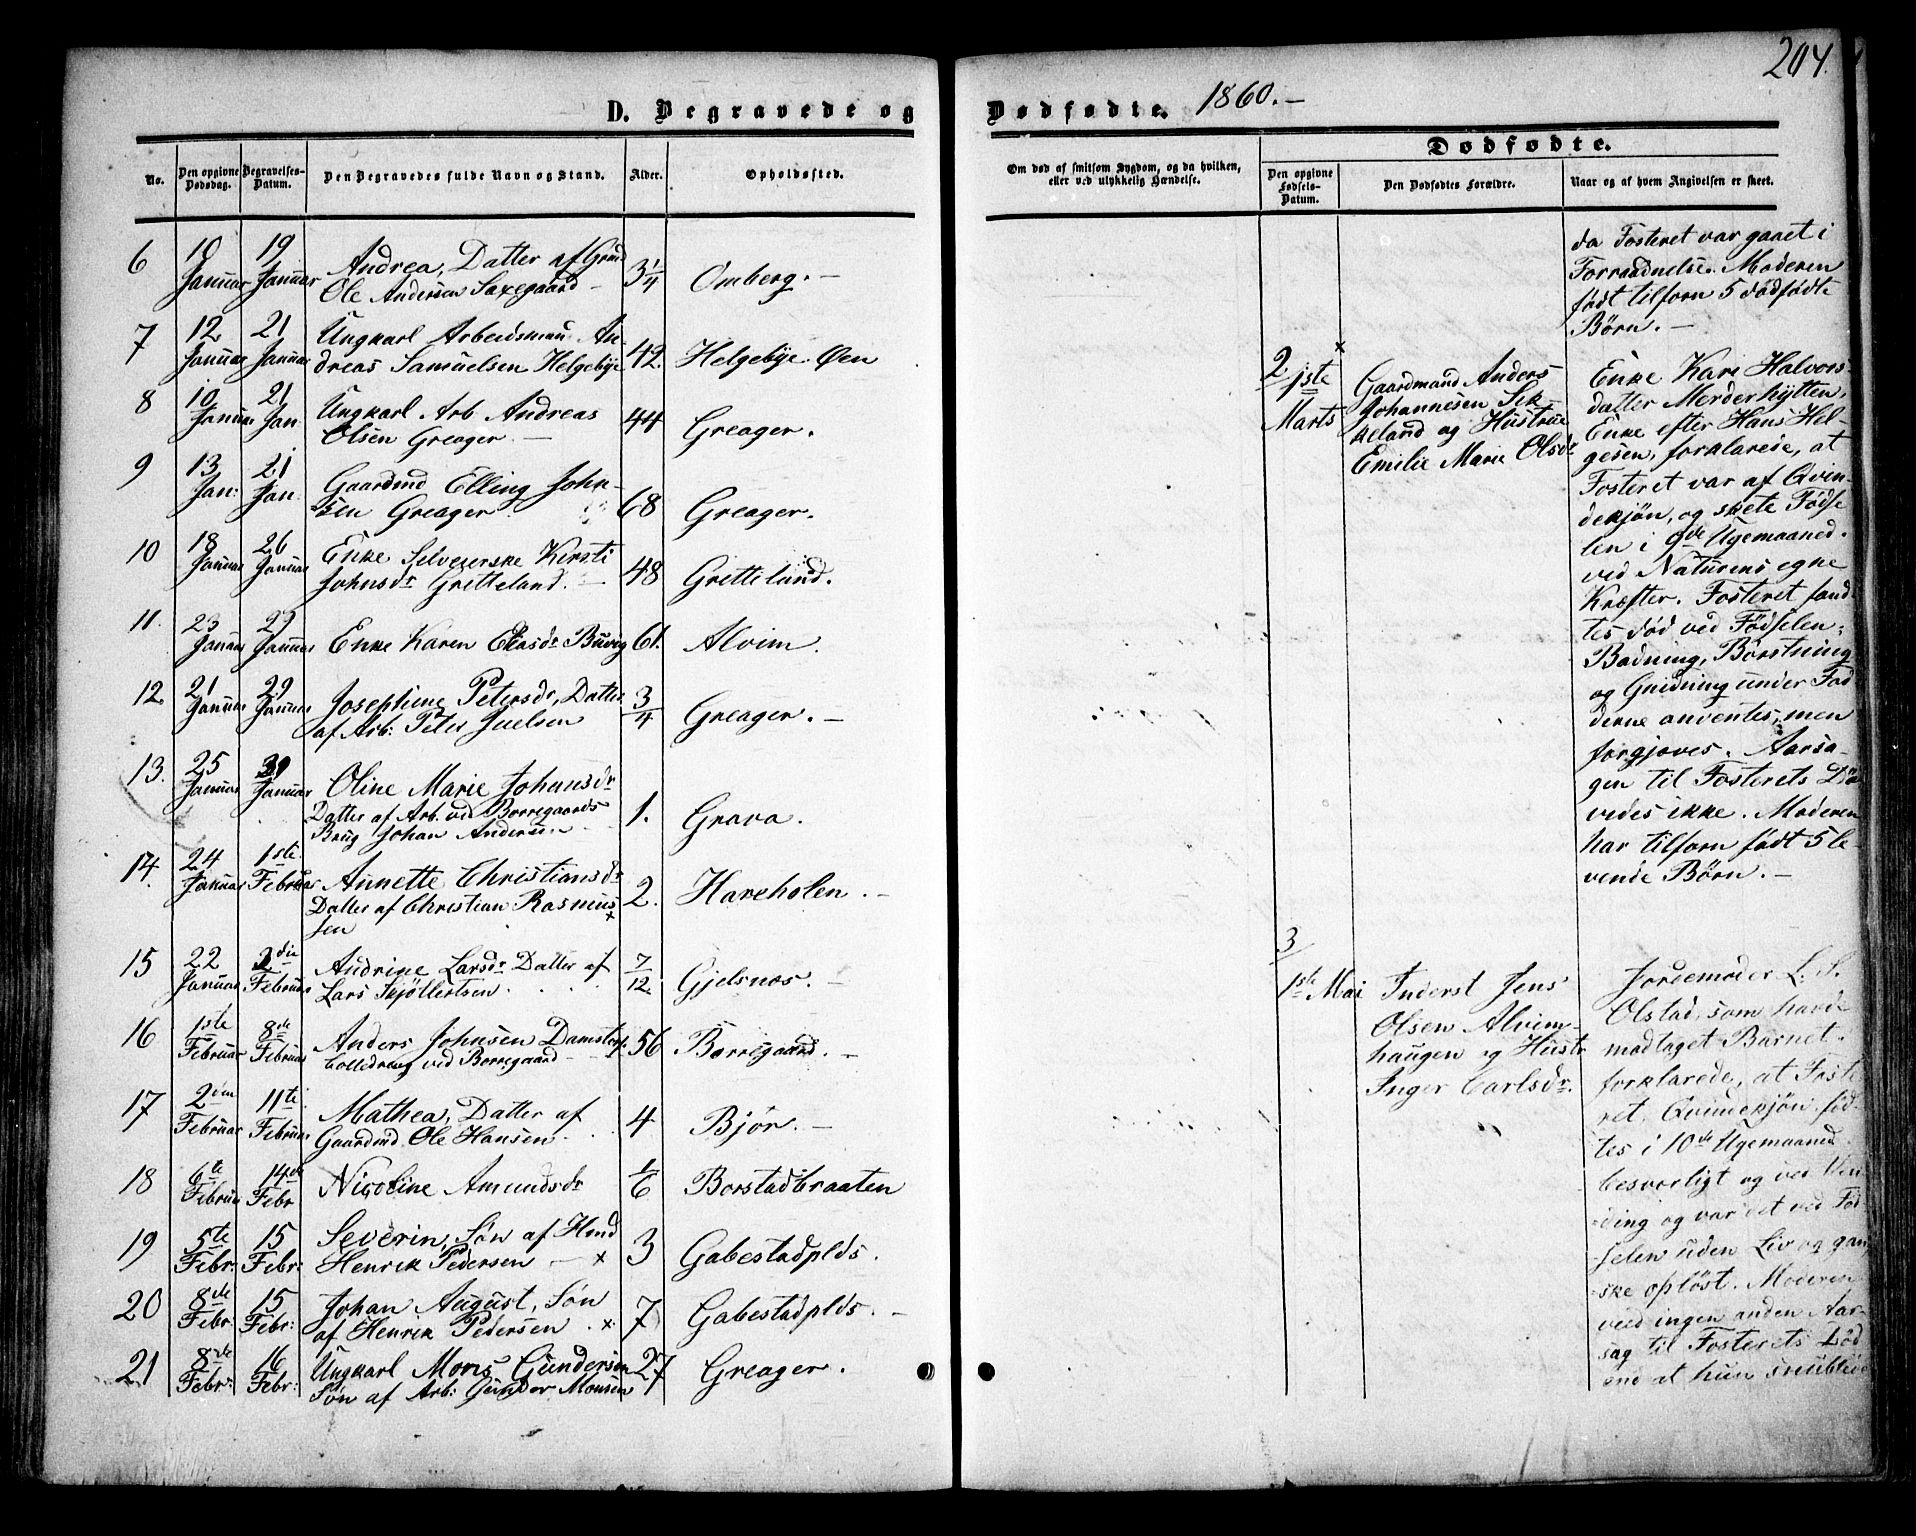 204.
D. Begravede og Dødfødte. 1860.—
Dødfødte.
No.
Den opgivne Dødsdag.
Begravelses-Datum.
Den Begravedes fulde Navn og Stand.
Alder.
Opholdssted.
Om død af smitsom Sygdom, og da hvilken,
eller ved ulykkelig Hændelse.
Den opgivne Fødsels-Datum.
Den Dødfødtes Forældre.
Naar og af hvem Angivelsen er skeet.
6 10 Januar 19 Januar Andrea, Datter af Grmd
Ole Andersen Saxegaard — 3 1/4 Omberg. —
7 12 Januar 21 Januar Ungkarl Arbeidsmand An-
dreas Samuelsen Helgebye 42. Helgebye Øen
8 10 Januar 21 Jan Ungkarl Arb Andreas
Olsen Greager. — 44 Greager.
9 13 Jan: 21 Jan. Gaardmd Elling John-
sen Greager 68 Greager.
10 18 Januar 26 Januar Enke Selveierske Kirsti
Johnsdr Gretteland. — 48 Gretteland.
11. 23 Januar 29 Januar Enke Karen Eliasdr Buvig 61. Alvim.
12. 21 Januar 29 Januar Josephine Petersdr, Datter
af Arb: Peter Juelsen 3/4 Greager. —
13. 25 Januar 30 Januar Oline Marie Johansdr
Datter af Arb. ved Borregaards
Brug Johan Andersen 1. Grava.
14. 24 Januar 1ste Februar Annette Christiansdr
Datter af Christian Rasmus
sen 2. Hareholen. —
15 22 Januar 2den Februar Andrine Larsdr Datter af
Lars Skjöllertsen 7/12. Gjelsnæs. —
16 1ste Februar 8de Februar Anders Johnsen Damstop.
Colledreng ved Borregaard 56 Borregaard. —
17 2den Februar 11te Februar Mathea, Datter af
Gaardmd. Ole Hansen. 4 Bjør. —
18 6te Februar 14de Febr Nicoline Amundsdr 1/6 Borstadbraaten
19 5te Febr. 15 Febr. Severin, Søn af Hmd
Henrik Pedersen — x 3 Gabestadplds.
20 8de Febr. 15 Febr: Johan August, Søn
af Henrik Pedersen . x 7 Gabestadplds. —
21 8de Febr: 16 Febr: Ungkarl Mons Gundersen
Søn af Arb: Gunder Monsen 27 Greager.
da Fosteret var gaaet i
Forraadnelse. Moderen
født tilforn 5 dødfødte
Børn. —
2 1ste Marts
Gaardmand Anders
Johannesen Sik-
keland og Hustrue
Emilie Marie Olsdr
Enke Kari Halvors-
datter Merderhytten,
Enke efter Hans Hel-
gesen, forklarede, at
Fosteret var af Qvin-
dekjön, og skete Fødse
len i 9de Ugemaaned.
ved Naturens egne
Kræfter. Fosteret fand-
tes død ved Fødselen;
Badning, Børstning
og Gnidning under Fød
derne anventes, men
forgjøves. Aarsa-
gen til Fosterets Død
vedes ikke. Moderen
har tilforn født 5 le
vende Børn. —
3 1ste Mai
Inderst Jens
Olsen Alvim-
haugen og Hustr
Inger Carlsdr.
Jordemoder L. S.
Olstad, som havde
modtaget Barnet.
forklarede, at Foste
ret, Qvindekjön, fød-
tes i 10de Ugemaaned.
besvorligt og ved Ven
ding og var det ved Fød
selen uden Liv og gan
ske opløst. Moderen
veed ingen anden Aar-
sag til Fosterets Død
end at hun snublede